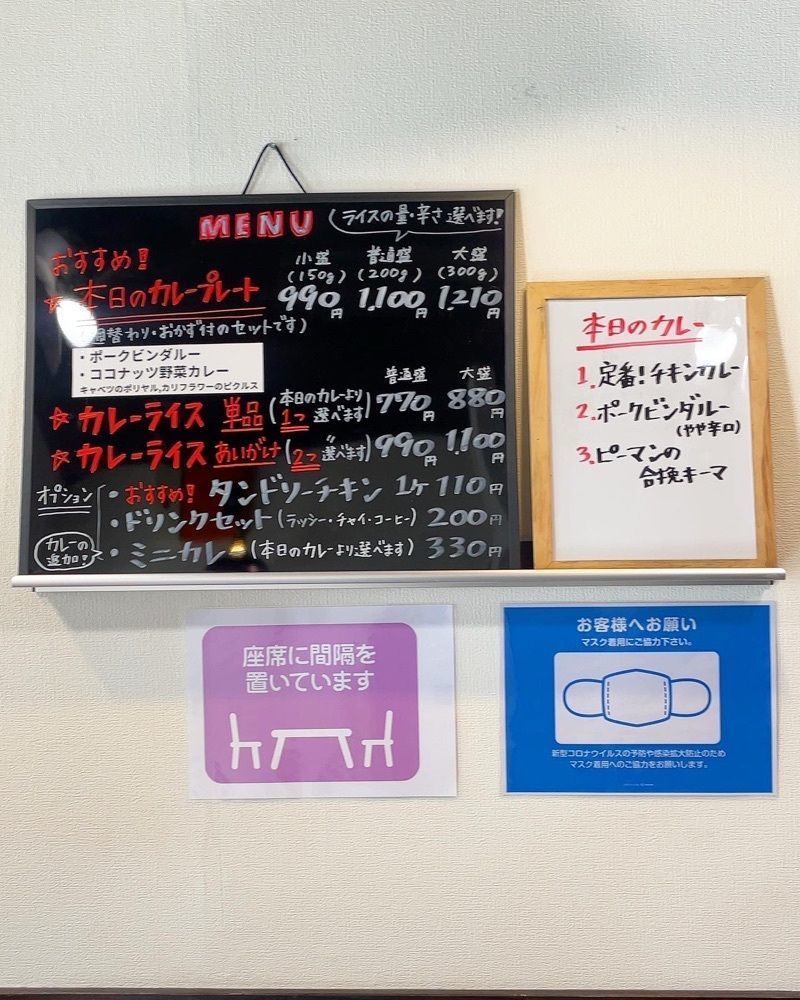 MENU (ライスの量・辛さ選べます!
おすすめ! 小盛 普通盛 大盛
(150g) (200g) (300g)
☆本日のカレープレート 990円 1,100円 1,210円
替わり・おかず付のセットです)
・ポークビンダルー
・ココナッツ野菜カレー
キャベツのポリヤル,カリフラワーのピクルス
普通盛 大盛
☆カレーライス 単品(本日のカレーより1つ選べます) 770円 880円
☆カレーライス あいがけ(2つ〃選べます) 990円 1,100円
オプション ・おすすめ! タンドリーチキン 1ヶ 110円
・ドリンクセット(ラッシー・チャイ・コーヒー) 200円
カレーの追加! ・ミニカレー(本日のカレーより選べます) 330円
本日のカレー
1.定番!チキンカレー
2.ポークビンダルー
(やや辛口)
3.ピーマンの
合挽キーマ
座席に間隔を
置いています
お客様へお願い
マスク着用にご協力下さい。
新型コロナウイルスの予防や感染拡大防止のため
マスク着用へのご協力をお願いします。